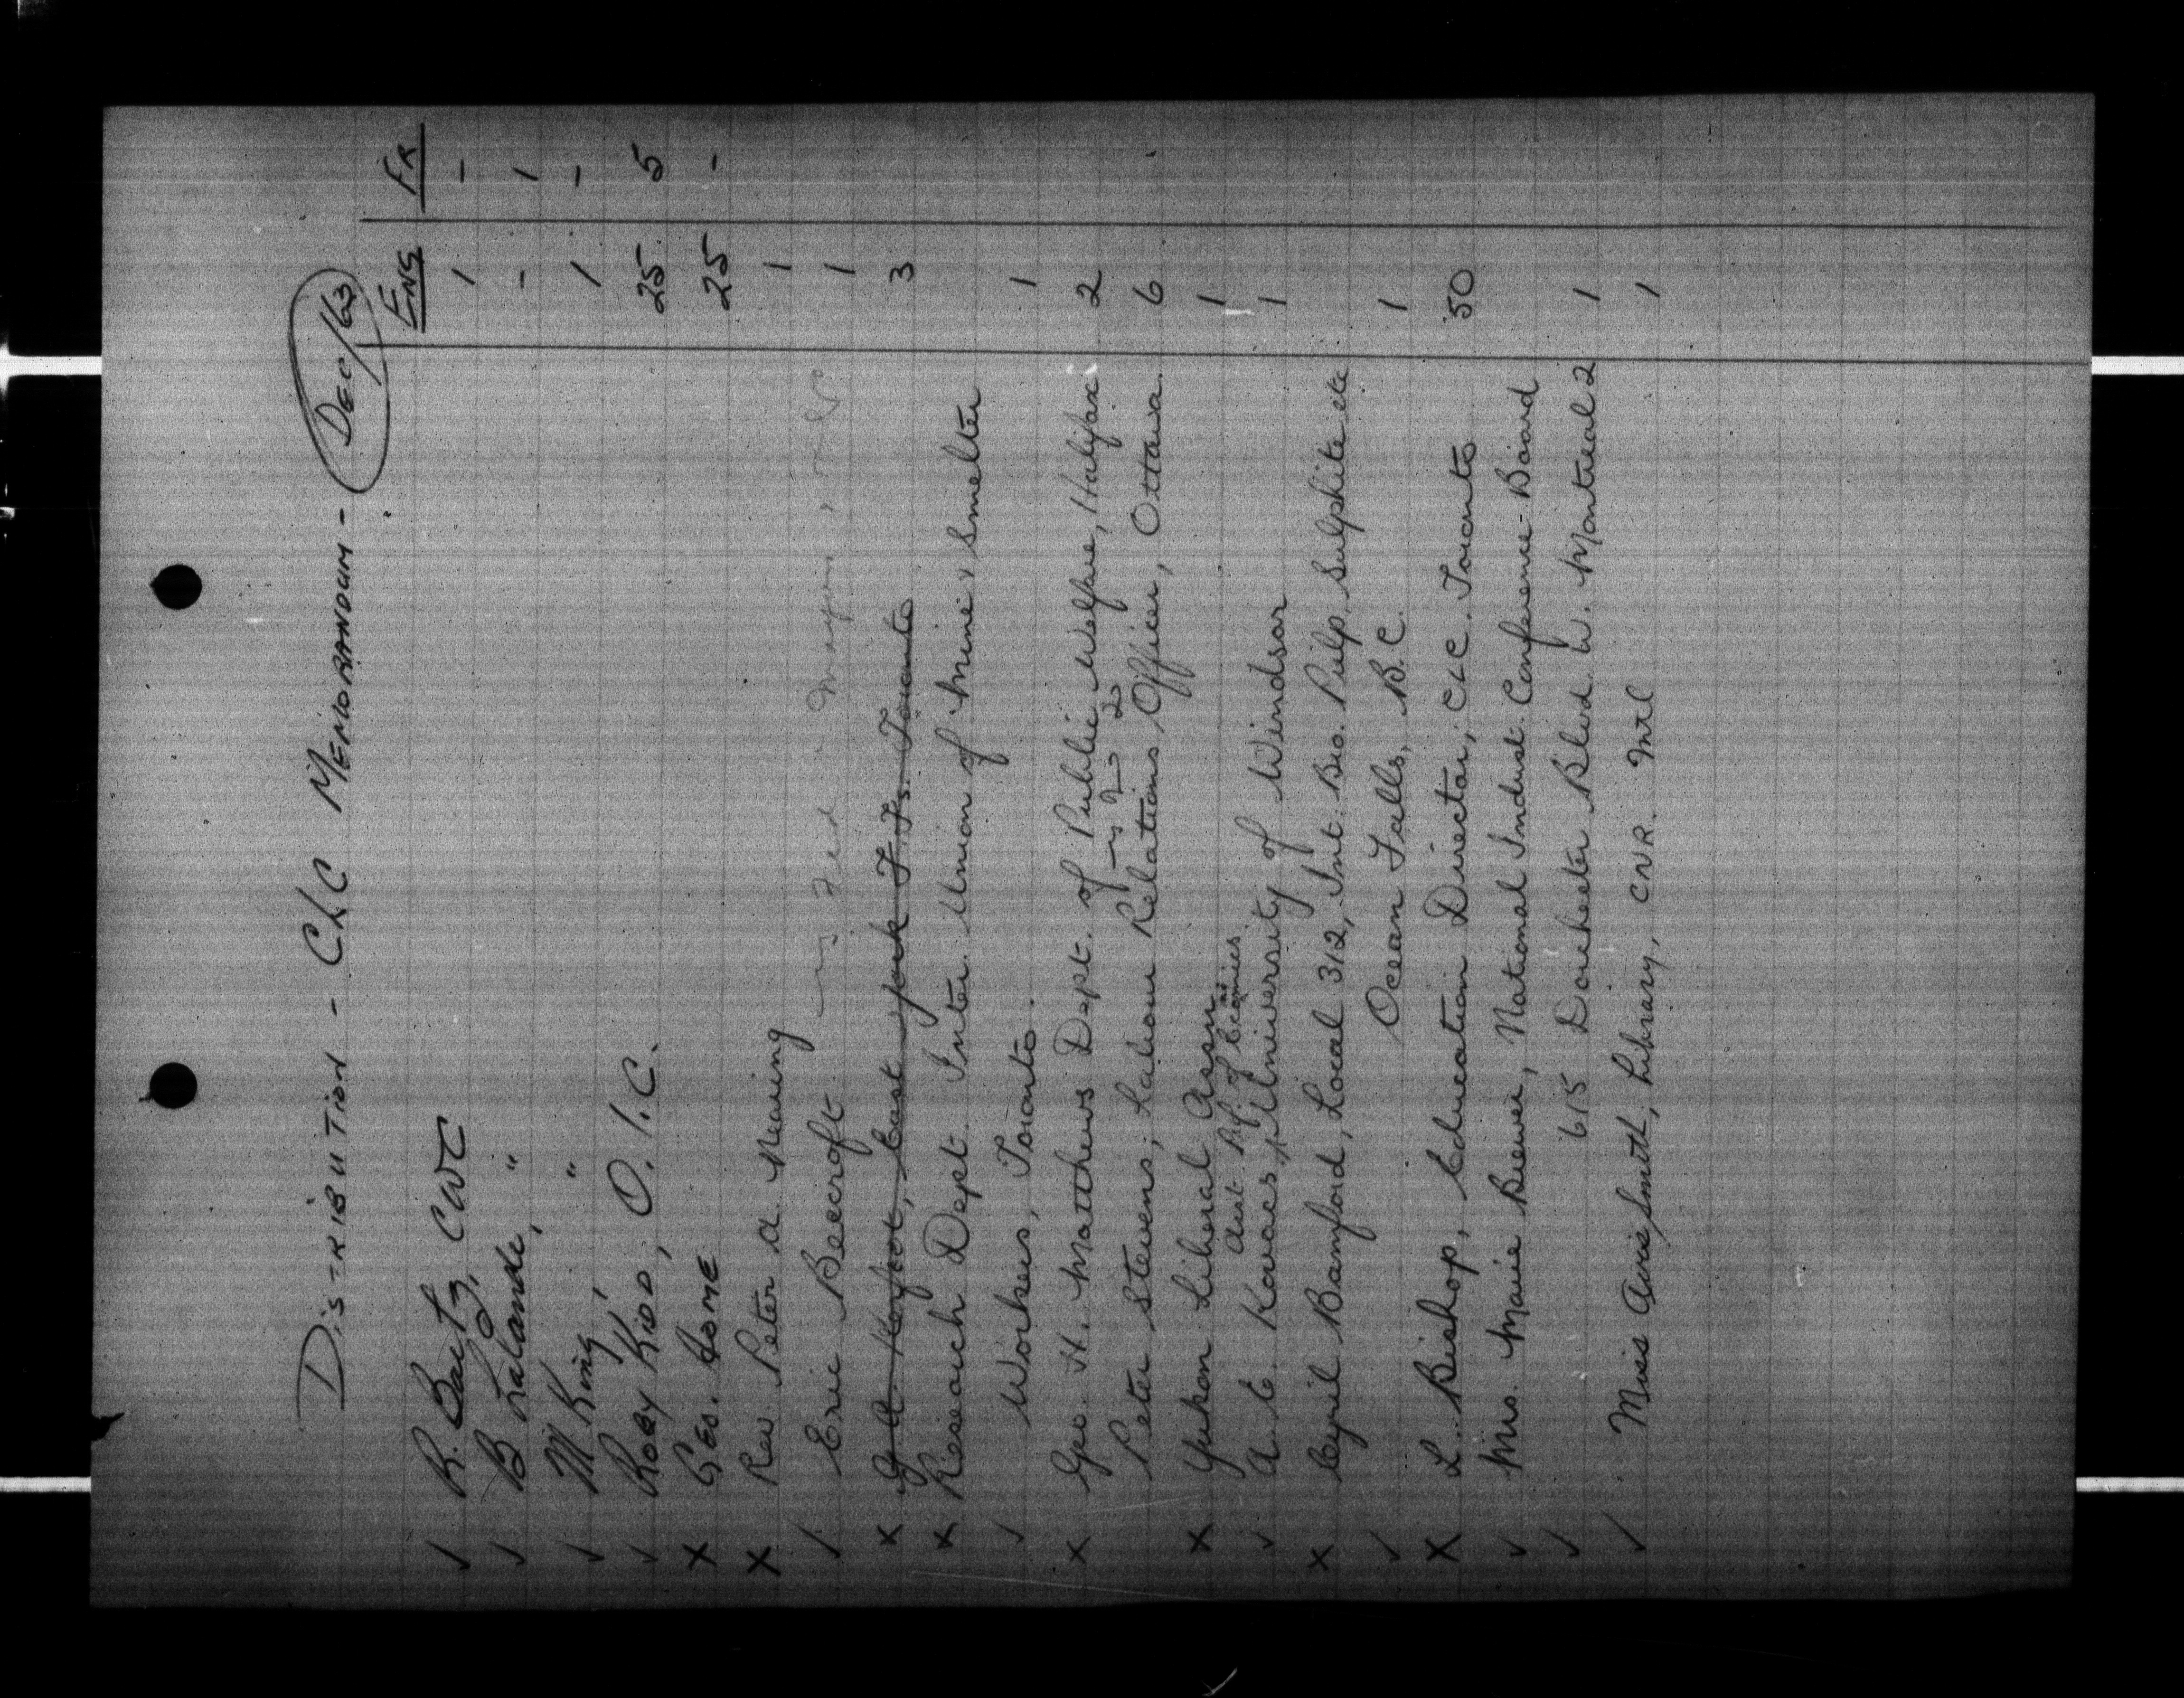 DISTRIBUTION - CLC MEMORANDUM - DEC/63
ENG FR
✓ R. Bartz, CWC 1 -
✓ B Lalande, " - 1
✓ M King, " 1 -
✓ ROBY KIDD, O.I.C. 25 5
X GEO. HOME 25 -
X Rev. Peter A. Nearing 1
✓ Eric Beecroft Fed Mayors 1
X East York T.S. Toronto 3
X Research Dept. Inter. Union of Mine & Smelter
✓ Workers, Toronto. 1
X Geo. H. Matthews Dept. of Public Welfare, Halifax 2
Peter Stevens, Labour Relations Officer, Ottawa. 6
X Yukon Liberal Assn. 1
Asst. Prof. of Economics
✓ A. E. Kovacs, University of Windsor 1
X Cyril Bamford, Local 312, Int. Bro. Pulp, Sulphite etc
✓ Ocean Falls, B.C. 1
X L. Bishop, Education Director, CLC. Toronto 50
✓ Mrs. Marie Brewer, National Indust. Conference Board
✓ 615 Dorchester Blvd. W. Montreal 2 1
✓ Miss Avis Smith, Library, CNR. Mtl 1